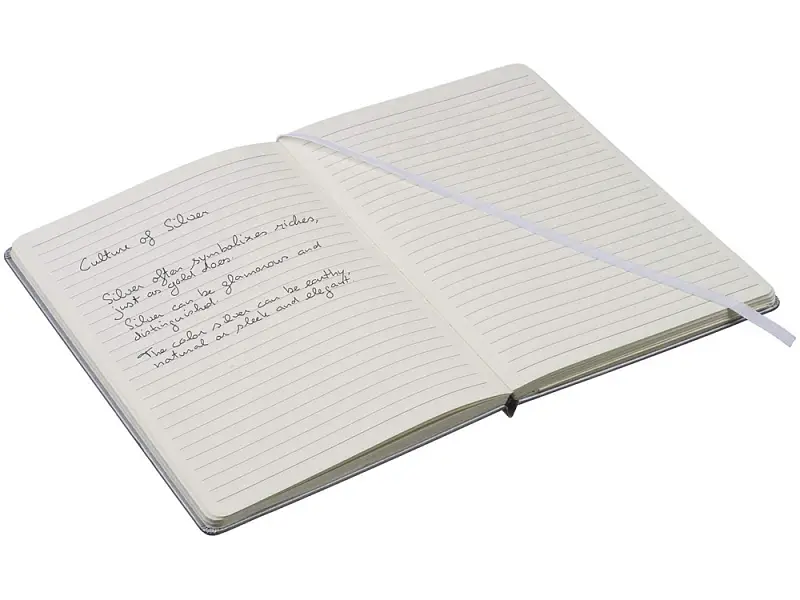 Culture of Silver
Silver often symbolizes riches,
just as gold does.
Silver can be glamorous and
distinguished.
The color silver can be earthy,
natural or sleek and elegant.